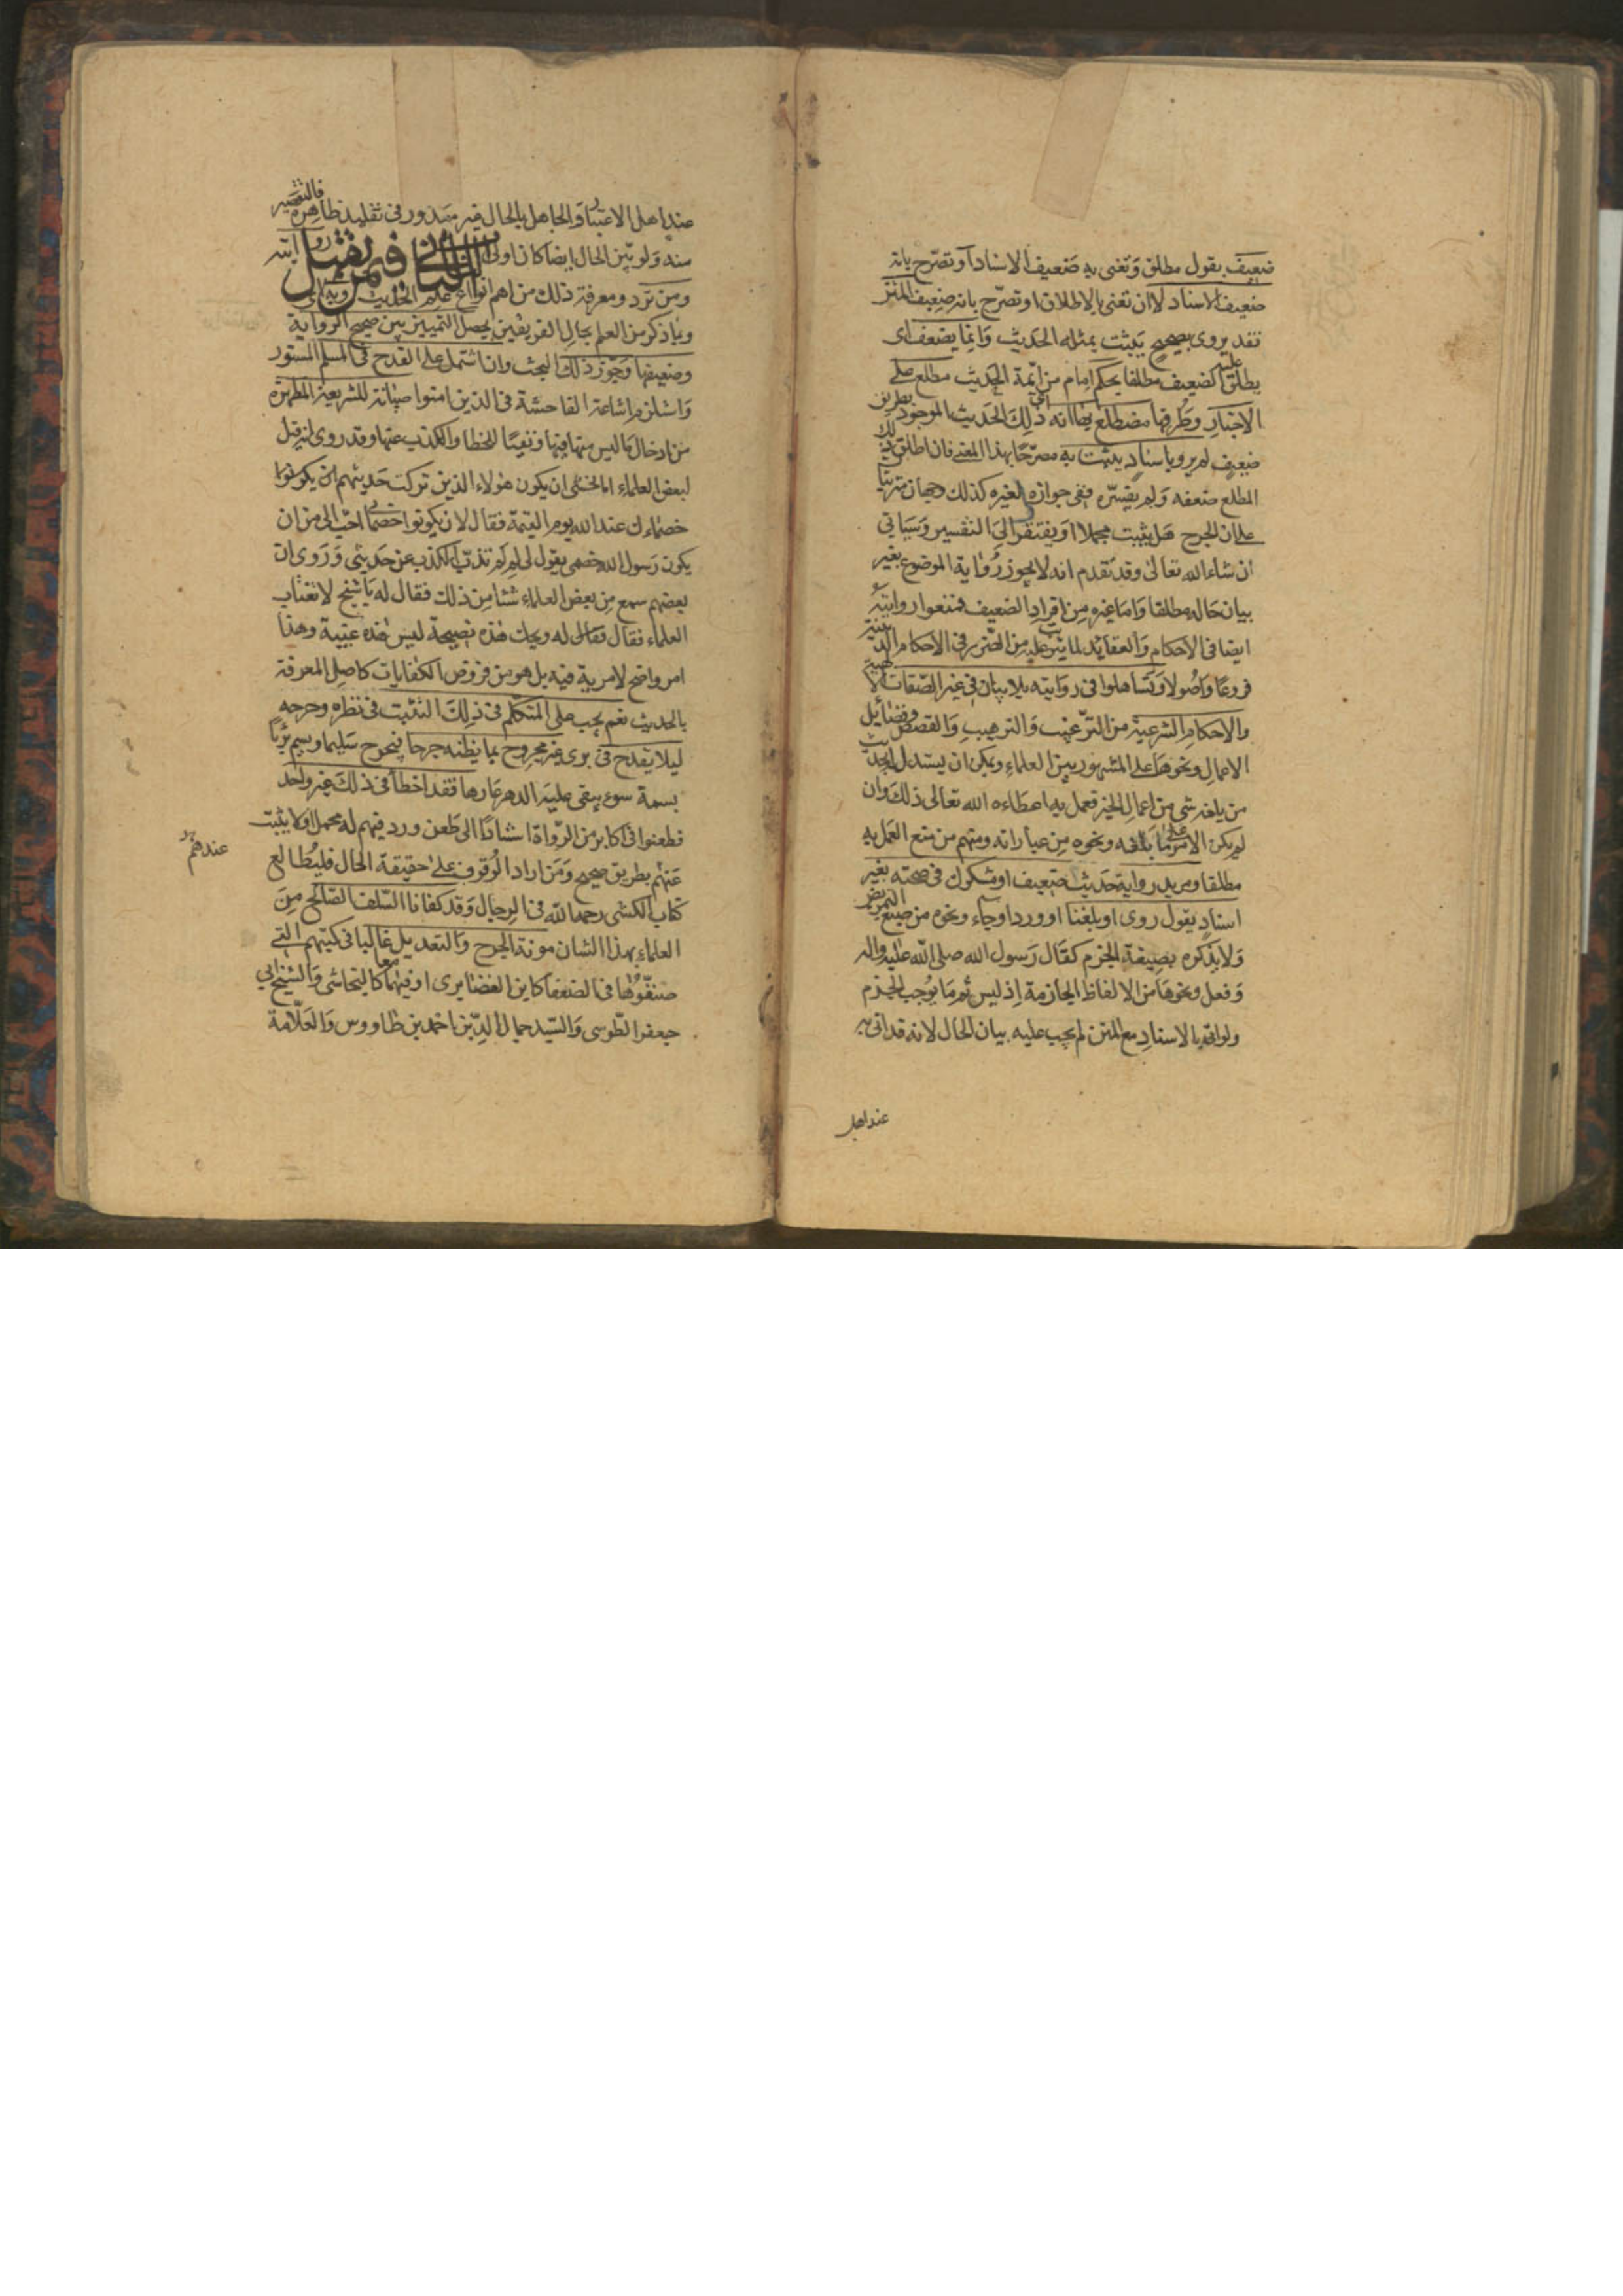 ضعيف بقول مطلق وتعنى به ضعيف الاسناد او تصرّح بانه
ضعيف الاسناد لا ان تعنى بالاطلاق او تصرّح بانه ضعيف المتن
فقد يروى بصحيح يثبت بمثله الحديث وانما يضعف اى
يطلق عليه الضعيف مطلقا بحكم امام من ايمة الحديث مطلع على
الاخبار وطرقها مضطلع بها انه اى ذلك الحديث الموجود بطريق
ضعيف لم يرو باسناد يثبت به مصرّحا بهذا المعنى فان اطلق ذلك
المطلع ضعفه ولم يفسّره ففى جوازه لغيره كذلك وجهان مترتبا
على ان الجرح هل يثبت مجملا او يفتقر الى التفسير وسياتى
ان شاء الله تعالى وقد تقدم انه لا يجوز رواية الموضوع بغير
بيان حاله مطلقا واما غيره من افراد الضعيف فمنعوا روايته
ايضا فى الاحكام والعقايد لما يترتب عليه من الضرر فى الاحكام الدينية
فروعا واصولا وتساهلوا فى روايته بلا بيان فى غير الصّفات الالهية
والاحكام الشرعية من الترغيب والترهيب والقصص وفضايل
الاعمال ونحوها على المشهور بين العلماء ويمكن ان يستدل بحديث
من بلغه شى من اعمال الخير فعمل به اعطاه الله تعالى ذلك وان
لم يكن الامر على ما بلغه ونحوه من عباراته ومنهم من منع العمل به
مطلقا ومريد رواية حديث ضعيف او مشكوك فى صحته بغير
اسناد يقول روى او بلغنا او ورد او جاء ونحوه من صيغ التمريض
ولا يذكره بصيغة الجزم كقال رسول الله صلى الله عليه واله
وفعل ونحوها من الالفاظ الجازمة اذ ليس ثم ما يوجب الجزم
ولو اتى بالاسناد مع المتن لم يجب عليه بيان الحال لانه قد اتى به
عند اهل
عند اهل الاعتبار والجاهل بالحال غير معذور فى تقليد ظاهره فالتقصير
منه ولو بيّن الحال ايضا كان اولى الباب الثانى فى من تقبل روايته
ومن ترد ومعرفة ذلك من اهم انواع علم الحديث
وبما ذكر من العلم بحال الفريقين يحصل التمييز بين صحيح الرواية
وضعيفها وجوّز ذلك البحث وان اشتمل على القدح فى المسلم المستور
واستلزم اشاعة الفاحشة فى الذين امنوا صيانة للشريعة المطهرة
من ادخال ما ليس منها فيها ونفيا للخطا والكذب عنها وقد روى انه قيل
لبعض العلماء اما تخشى ان يكون هولاء الذين تركت حديثهم ان يكونوا
خصماءك عند الله يوم القيمة فقال لان يكونوا خصمائى احبّ الى من ان
يكون رسول الله خصمى يقول لى لم لم تذبّ الكذب عن حديثى وروى ان
بعضهم سمع من بعض العلماء شئا من ذلك فقال له يا شيخ لا تغتاب
العلماء فقال له ويحك هذه نصيحة ليس هذه غيبة وهذا
امر واضح لا مرية فيه بل هو من فروض الكفايات كاصل المعرفة
بالحديث نعم يجب على المتكلم فى ذلك التثبت فى نظره وجرحه
ليلا يقدح فى برى غير مجروح بما يظنه جرحا فيجرح سليما ويسم بريّا
بسمة سوء يبقى عليه الدهر عارها فقد اخطأ فى ذلك غير واحد
فطعنوا فى اكابر من الرّواة استنادا الى طعن ورد فيهم له محمل او لا يثبت
عندهم
عنهم بطريق صحيح ومن اراد الوقوف على حقيقة الحال فليطالع
كتاب الكشى رحمه الله فى الرجال وقد كفانا السّلف الصّالح من
العلماء بهذا الشان مونة الجرح والتعديل غالبا فى كتبهم التى
صنفوها فى الضعفا كابن الغضايرى او فيهما معا كالنجاشى والشيخ ابى
جعفر الطّوسى والسّيد جمال الدّين احمد بن طاووس والعلّامة